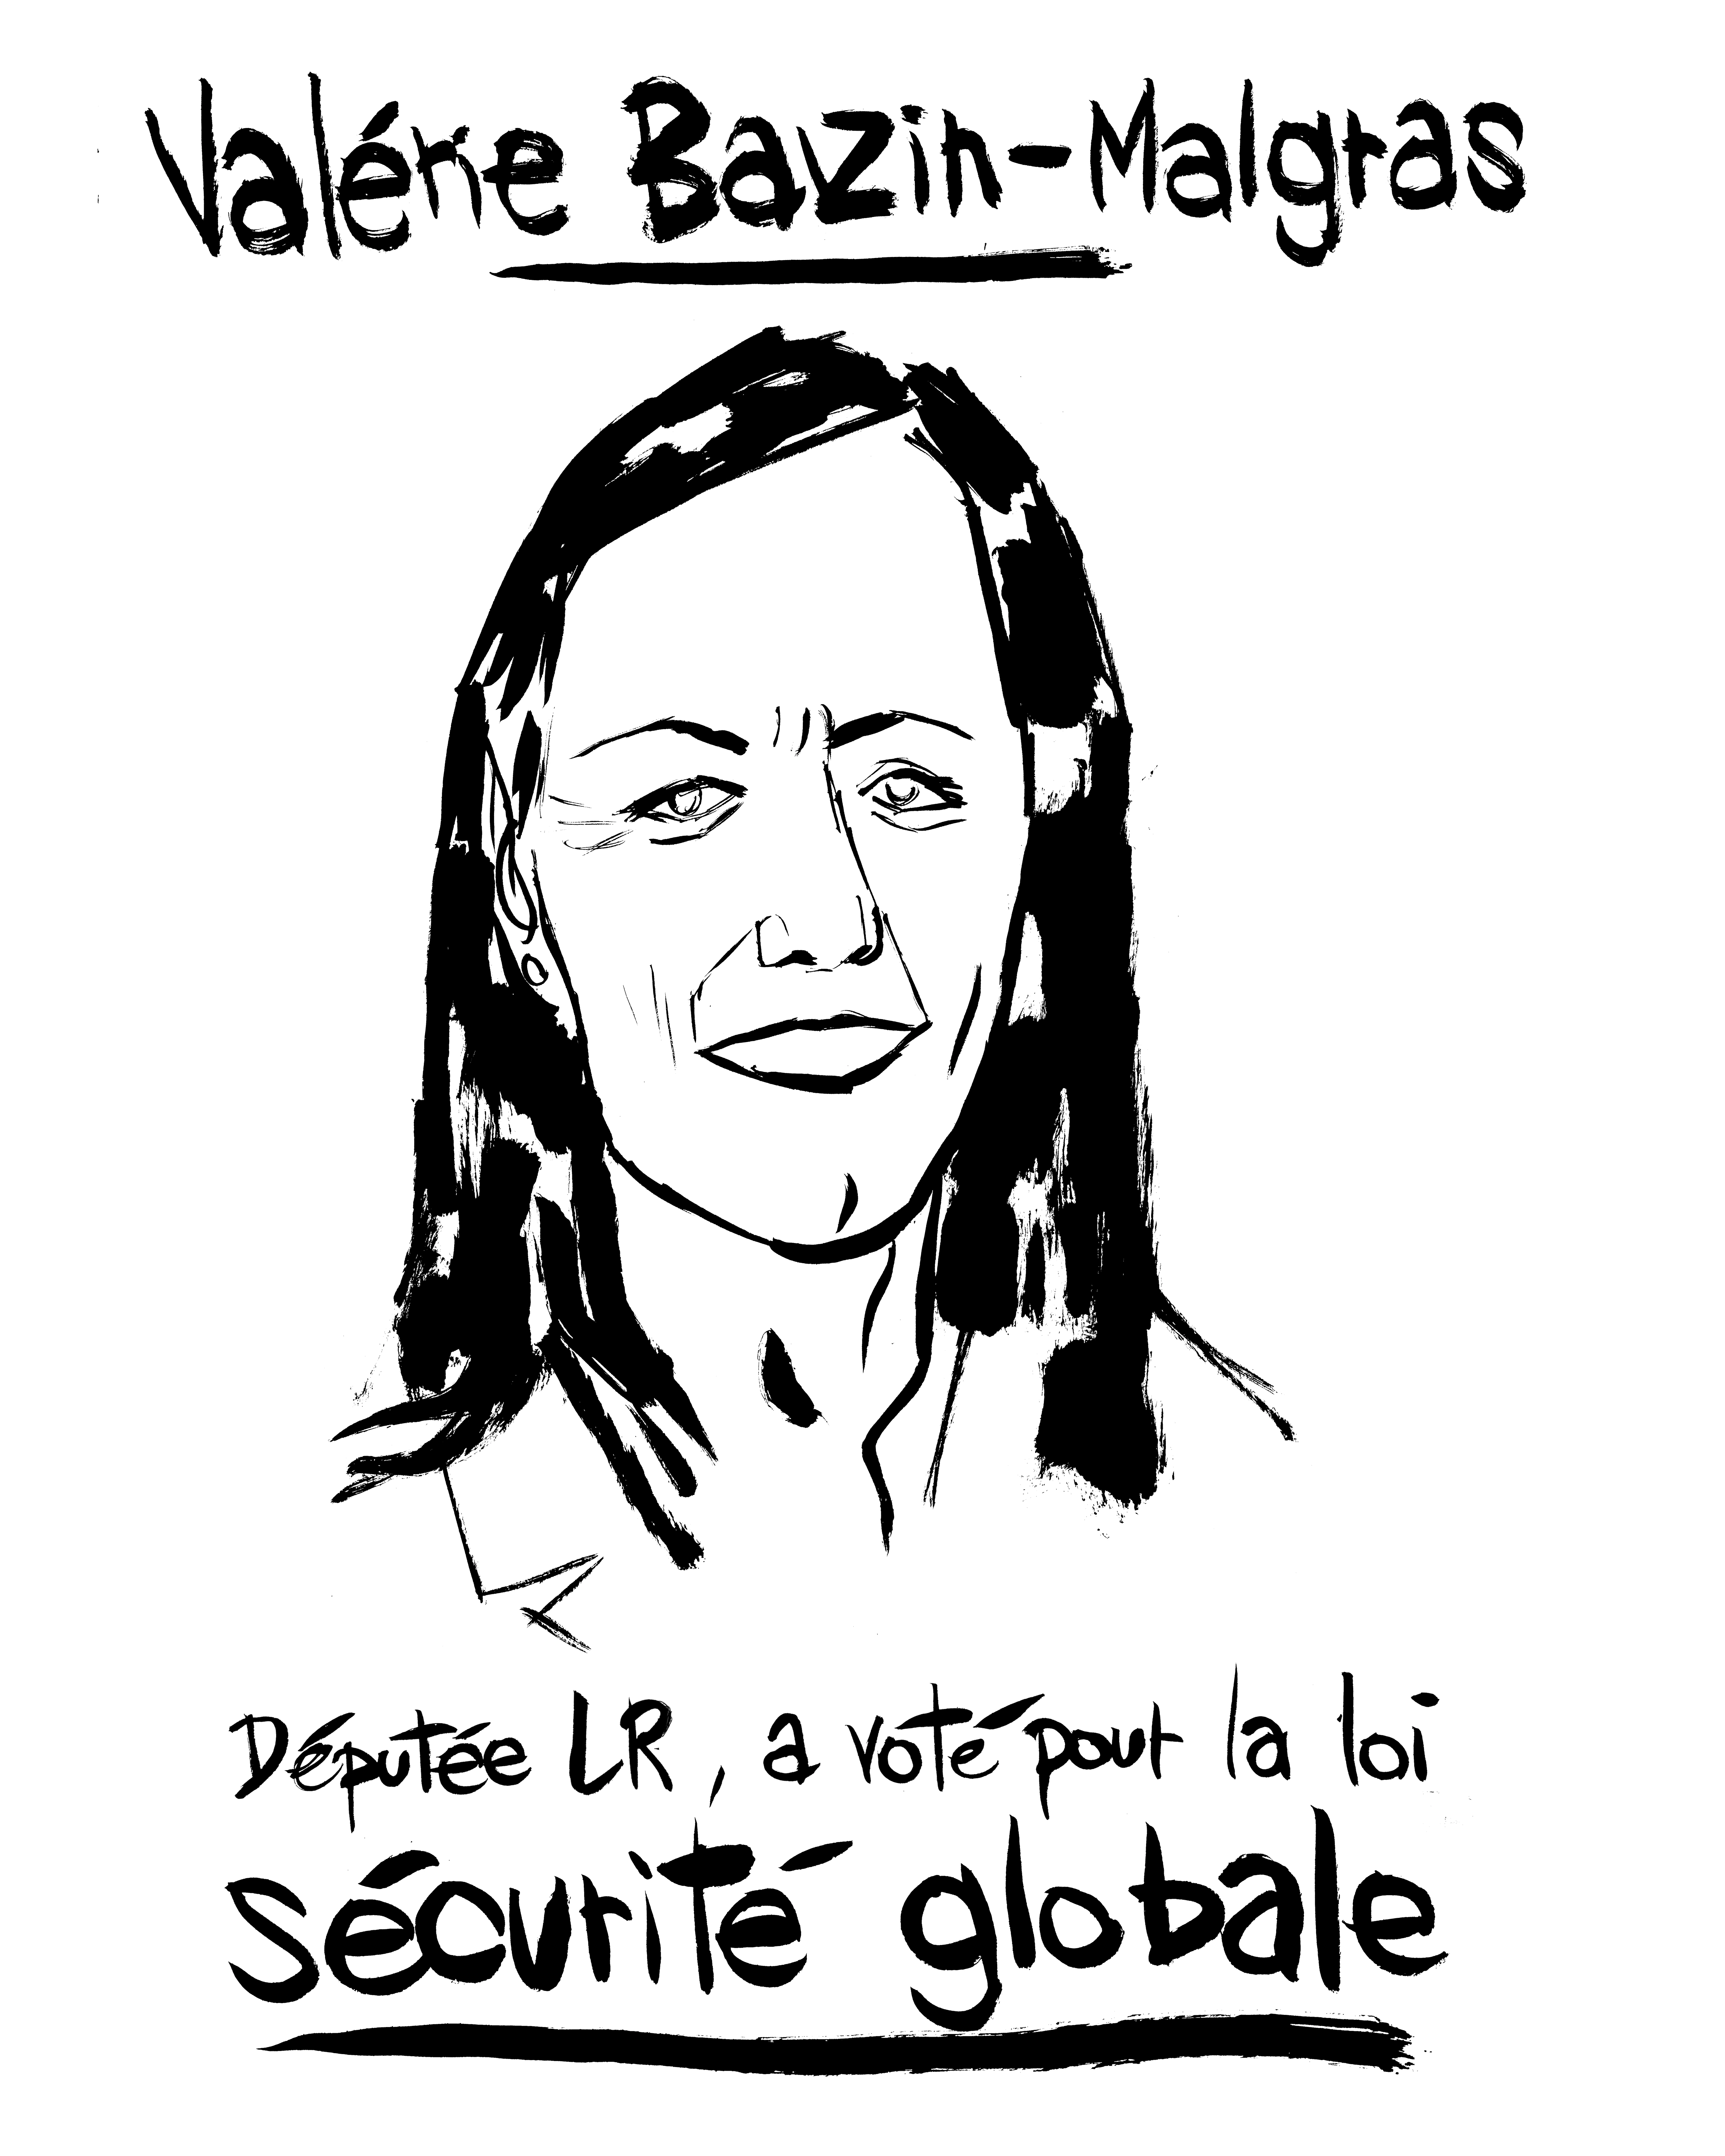 Valérie Bazin-Malgras
Députée LR, a voté pour la loi
sécurité globale